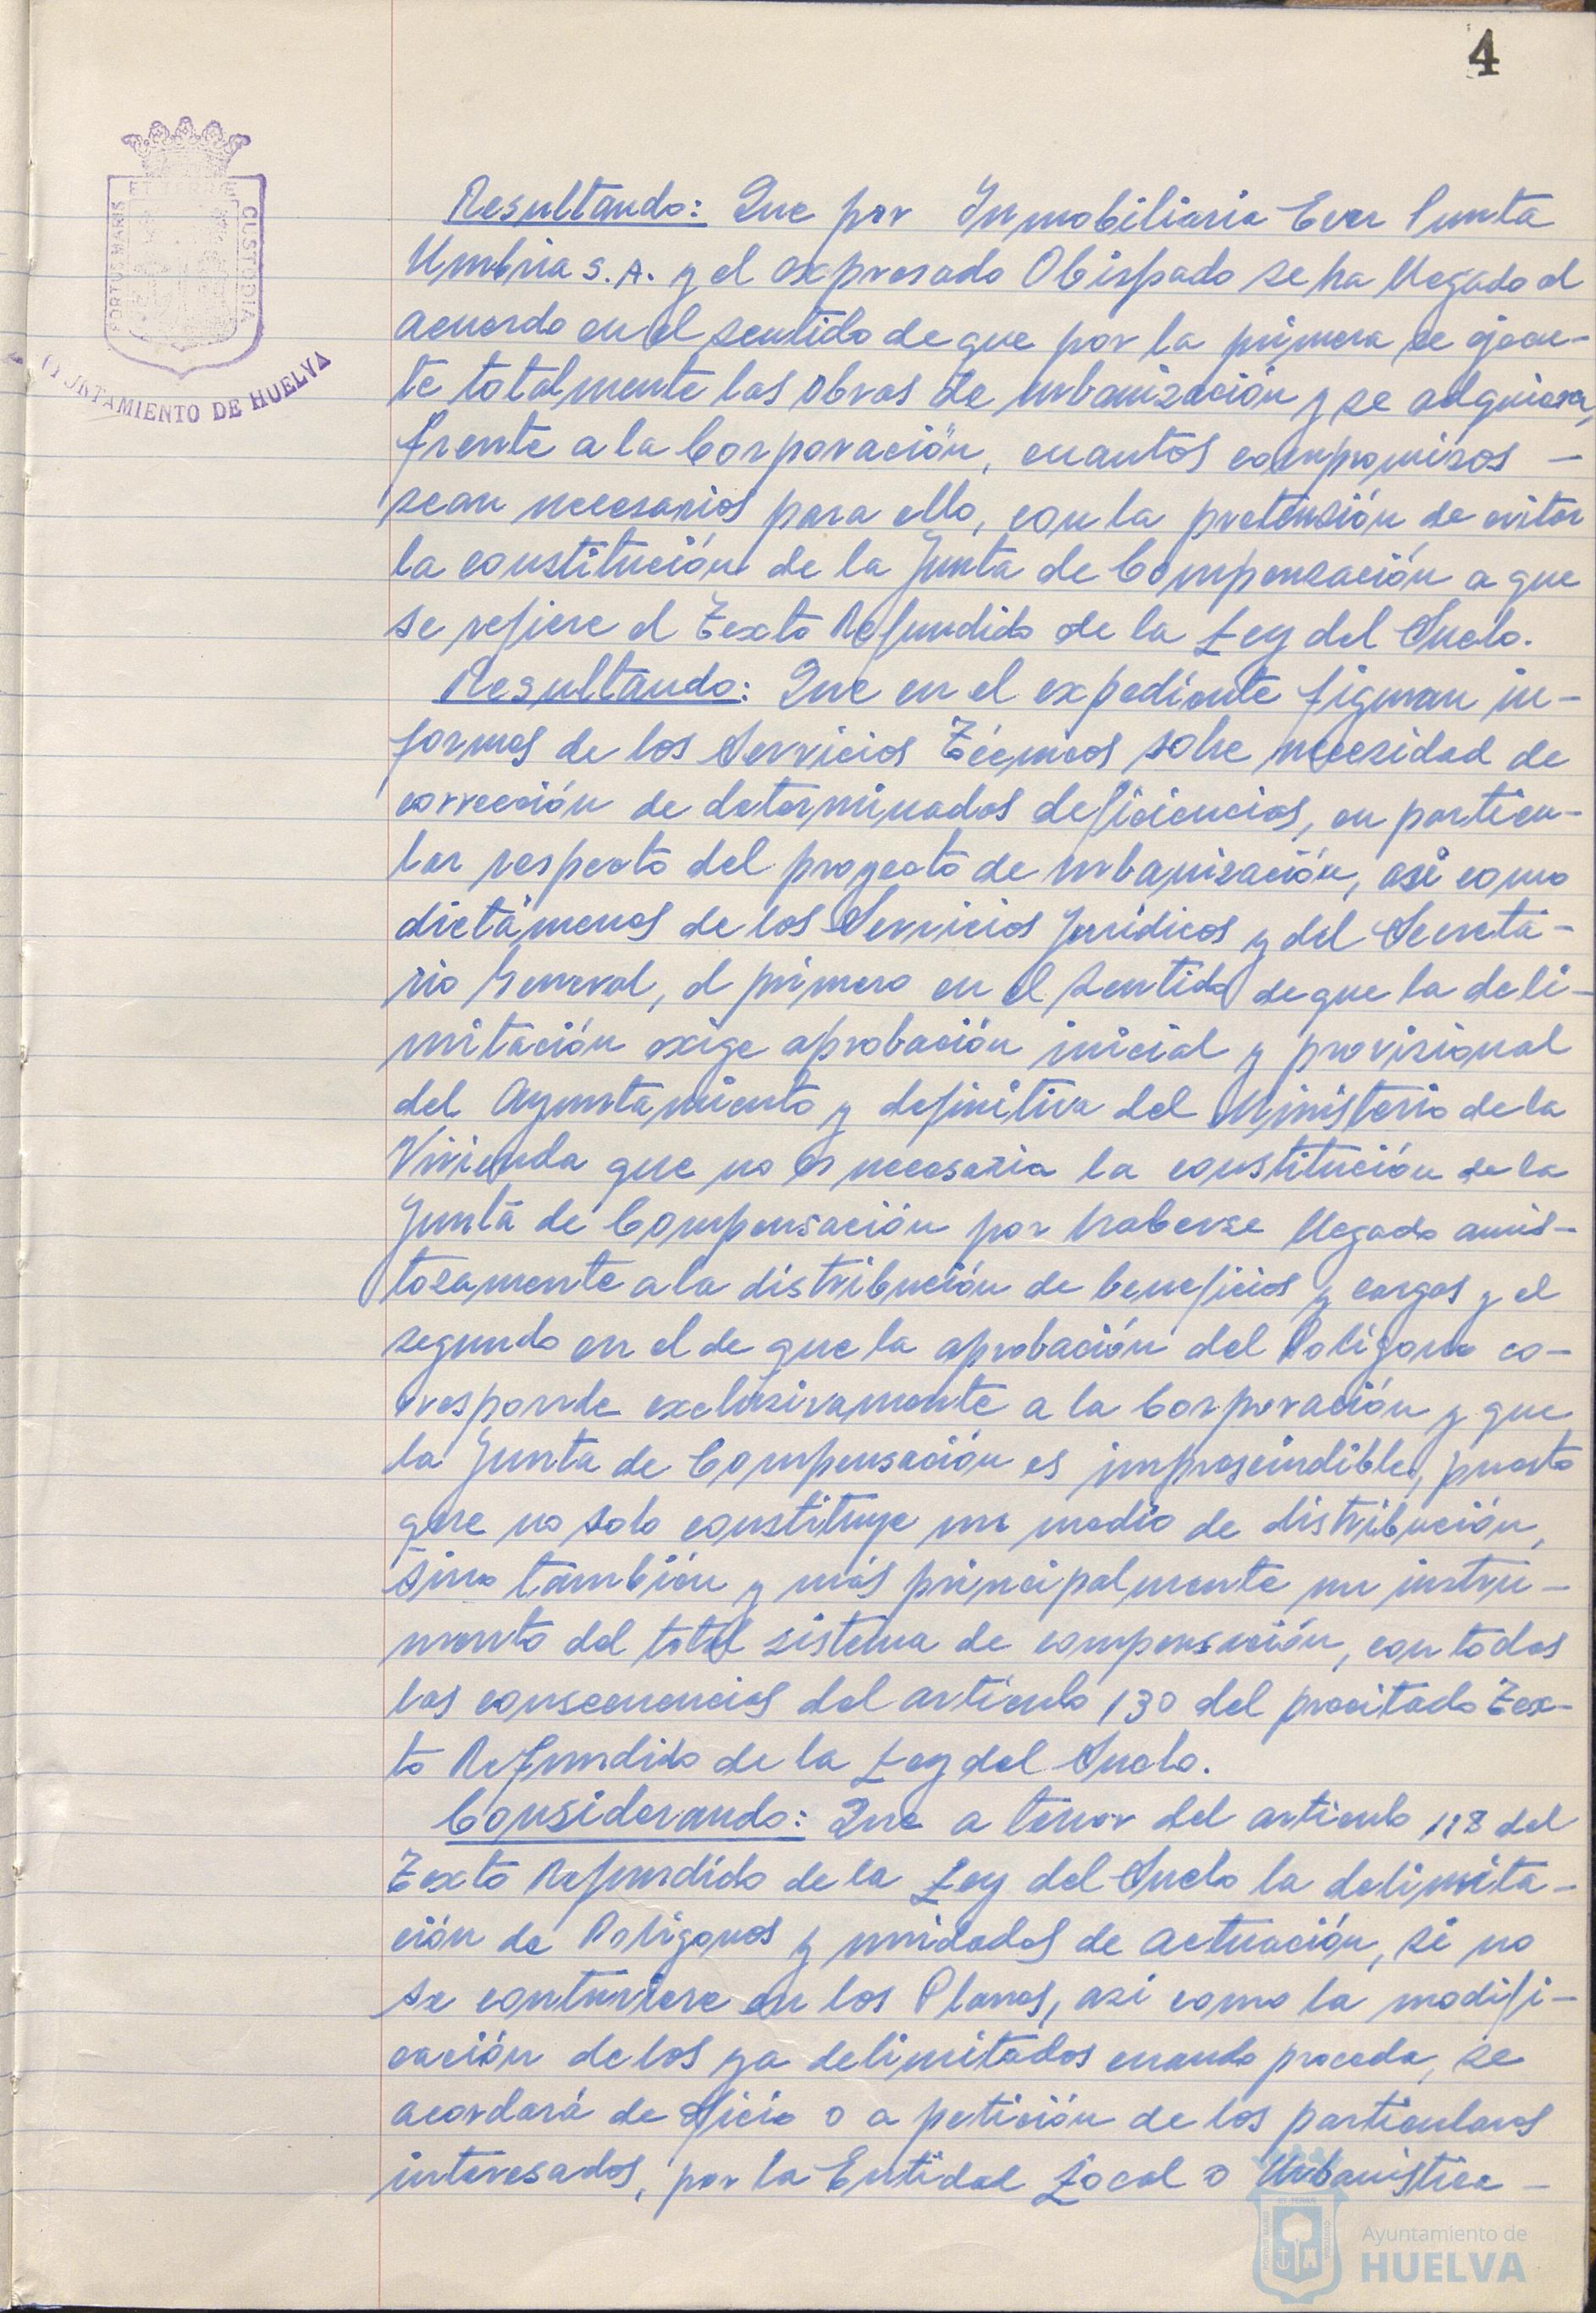 4
ET TERRE
PORTUS MARIS
CUSTODIA
AYUNTAMIENTO DE HUELVA
Resultando: Que por Inmobiliaria Ever Punta
Umbria S.A. y el expresado Obispado se ha llegado al
acuerdo en el sentido de que por la primera se ejecu-
te totalmente las obras de urbanización y se adquieran,
frente a la Corporación, cuantos compromisos -
sean necesarios para ello, con la pretensión de evitar
la constitución de la Junta de Compensación a que
se refiere el Texto Refundido de la Ley del Suelo.
Resultando: Que en el expediente figuran in-
formes de los Servicios Técnicos sobre necesidad de
corrección de determinadas deficiencias, en particu-
lar respecto del proyecto de urbanización, asi como
dictámenes de los Servicios Jurídicos y del Secreta-
rio General, el primero en el sentido de que la deli-
mitación exige aprobación inicial y provisional
del Ayuntamiento y definitiva del Ministerio de la
Vivienda que no es necesaria la constitución de la
Junta de Compensación por haberse llegado amis-
tosamente a la distribución de beneficios y cargas y el
segundo en el de que la aprobación del Poligono co-
rresponde exclusivamente a la Corporación y que
la Junta de Compensación es imprescindible, puesto
que no solo constituye un medio de distribución,
sino también y más principalmente un instru-
mento del total sistema de compensación, con todas
las consecuencias del artículo 130 del precitado Tex-
to Refundido de la Ley del Suelo.
Considerando: Que a tenor del artículo 118 del
Texto Refundido de la Ley del Suelo la delimita-
ción de Poligonos y unidades de actuación, si no
se contuviere en los Planes, asi como la modifi-
cación de los ya delimitados cuando proceda, se
acordará de oficio o a petición de los particulares
interesados, por la Entidad Local o Urbanistica -
Ayuntamiento de
HUELVA